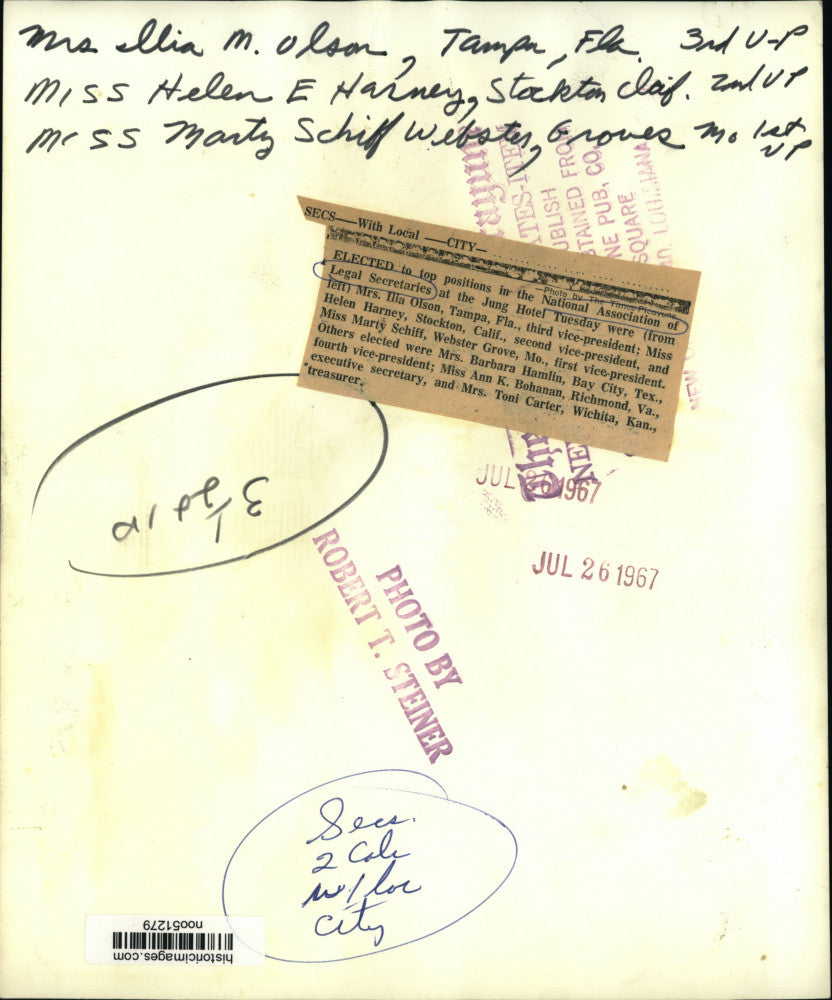 Mrs Illia M. Olson, Tampa, Fla. 3rd V-P
Miss Helen E Harney, Stockton Calif. 2nd VP
Miss Marty Schiff Webster, Groves Mo. 1st
VP
SECS—With Local —CITY—
Photo by The Times-Picayune
ELECTED to top positions in the National Association of
Legal Secretaries at the Jung Hotel Tuesday were (from
left) Mrs. Ilia Olson, Tampa, Fla., third vice-president; Miss
Helen Harney, Stockton, Calif., second vice-president, and
Miss Marty Schiff, Webster Grove, Mo., first vice-president.
Others elected were Mrs. Barbara Hamlin, Bay City, Tex.,
fourth vice-president; Miss Ann K. Bohanan, Richmond, Va.,
executive secretary, and Mrs. Toni Carter, Wichita, Kan.,
treasurer.
PUB. CO.
SQUARE
LOUISIANA
JUL 26 1967
JUL 26 1967
PHOTO BY
ROBERT T. STEINER
Secs.
2 Cols
w/loc
City
historicimages.com
noo51279